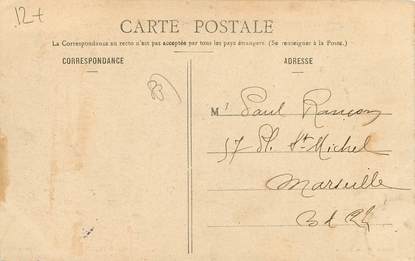 12+
CARTE POSTALE
La Correspondance au recto n'est pas acceptée par tous les pays étrangers. (Se renseigner à la Poste.)
CORRESPONDANCE
ADRESSE
M Paul Rançon
57 Pl. St Michel
Marseille
B d R